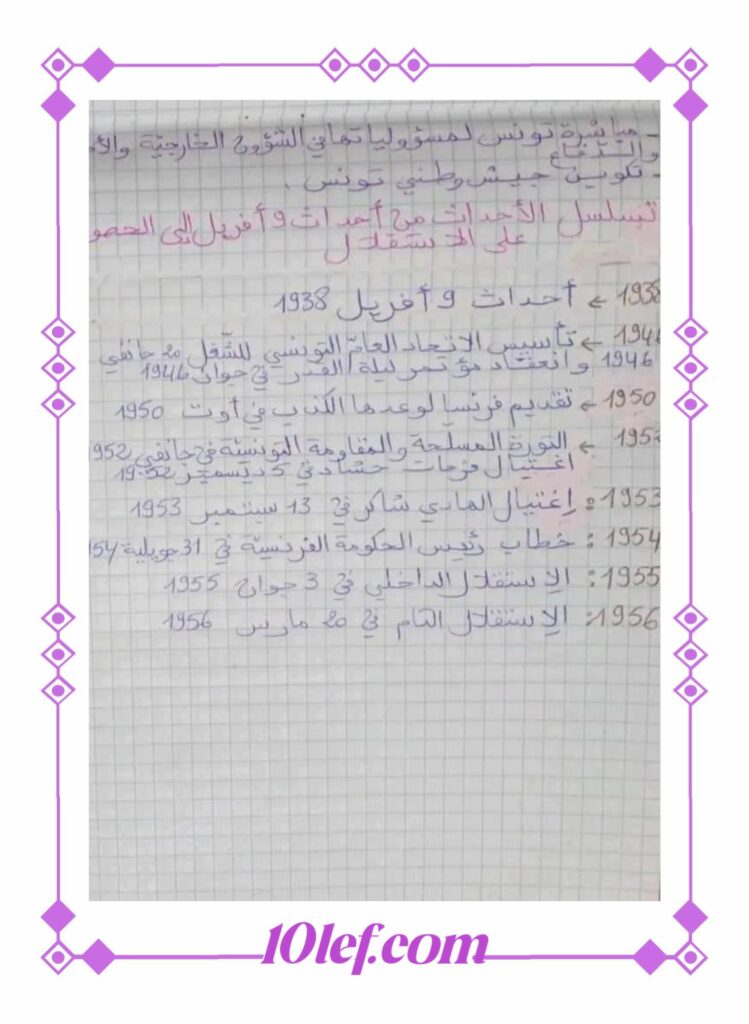 - مباشرة تونس لمسؤولياتها في الشؤون الخارجية والأم
والدفاع
- تكوين جيش وطني تونس .
تسلسل الأحداث من أحداث 9 أفريل إلى الحصو
على الاستقلال
1938 ← أحداث 9 أفريل 1938
1946 ← تأسيس الاتحاد العام التونسي للشّغل 20 جانفي
1946 وانعقاد مؤتمر ليلة القدر في جوان 1946
1950 ← تقديم فرنسا لوعدها الكذب في أوت 1950
1952 ← الثورة المسلحة والمقاومة التونسية في جانفي 1952
اغتيال فرحات حشاد في 5 ديسمبر 1952
1953 : إغتيال الهادي شاكر في 13 سبتمبر 1953
1954 : خطاب رئيس الحكومة الفرنسية في 31 جويلية 954
1955 : الإستقلال الداخلي في 3 جوان 1955
1956 : الإستقلال التام في 20 مارس 1956
10lef.com